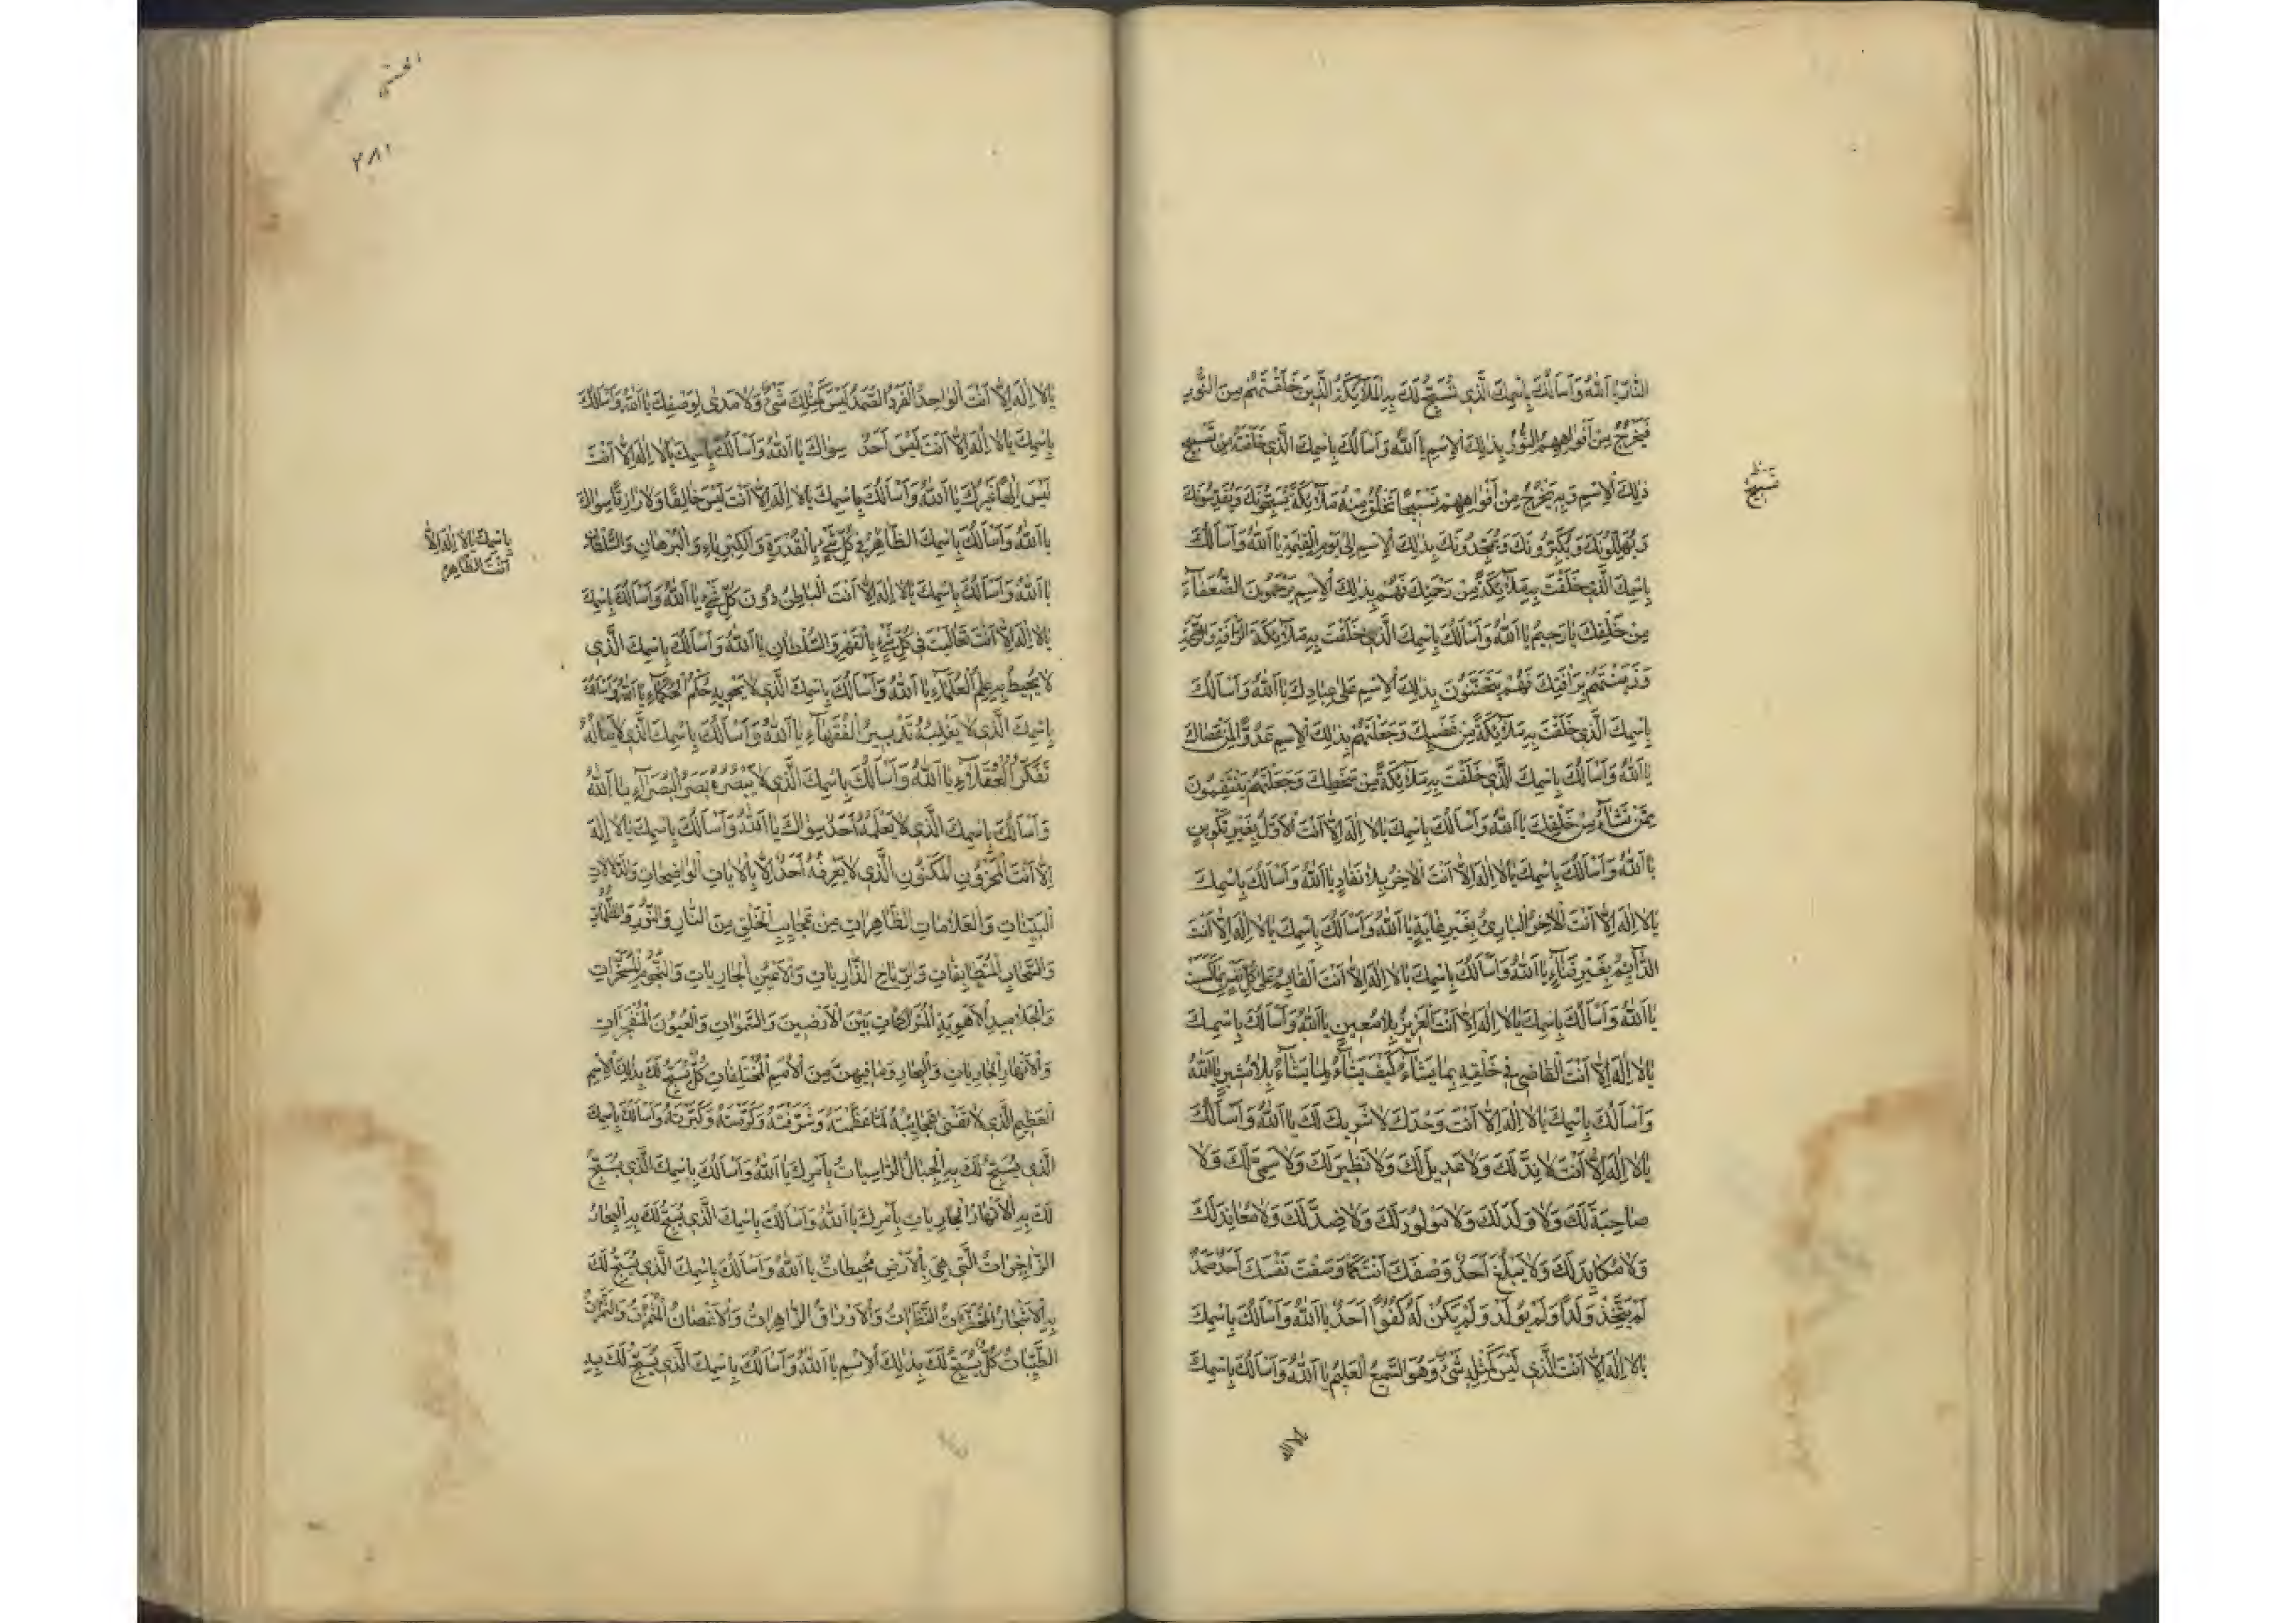 النَّارِ يَا اَللّٰهُ وَاَسْاَلُكَ بِاسْمِكَ الَّذِي تُسَبِّحُ لَكَ بِهِ الْمَلَآئِكَةُ الَّذِينَ خَلَقْتَهُمْ مِنَ النُّورِ
فَيَخْرُجُ مِنْ اَفْوٰاهِهِمُ النُّورُ بِذٰلِكَ الْاِسْمِ يَا اَللّٰهُ وَاَسْاَلُكَ بِاسْمِكَ الَّذِي خَلَقْتَهُ مِنْ تَسْبِيحِ
ذٰلِكَ الْاِسْمِ وَبِهِ يَخْرُجُ مِنْ اَفْوٰاهِهِمْ تَسْبِيحًا تَخْلُقُ مِنْهُ مَلَآئِكَةً يُسَبِّحُونَكَ وَيُقَدِّسُونَكَ
تسبيح
وَيُهَلِّلُونَكَ وَيُكَبِّرُونَكَ وَيُمَجِّدُونَكَ بِذٰلِكَ الْاِسْمِ اِلٰى يَوْمِ الْقِيٰمَةِ يَا اَللّٰهُ وَاَسْاَلُكَ
بِاسْمِكَ الَّذِي خَلَقْتَ بِهِ مَلَآئِكَةً مِنْ رَحْمَتِكَ فَهُمْ بِذٰلِكَ الْاِسْمِ يَرْحَمُونَ الضُّعَفَآءَ
مِنْ خَلْقِكَ يَا رَحِيمُ يَا اَللّٰهُ وَاَسْاَلُكَ بِاسْمِكَ الَّذِي خَلَقْتَ بِهِ مَلَآئِكَةَ الرَّاْفَةِ وَالرَّحْمَةِ
بِرَاْفَتِكَ فَهُمْ يَتَحَنَّنُونَ بِذٰلِكَ الْاِسْمِ عَلٰى عِبَادِكَ يَا اَللّٰهُ وَاَسْاَلُكَ
بِاسْمِكَ الَّذِي خَلَقْتَ بِهِ مَلَآئِكَةً مِنْ غَضَبِكَ وَجَعَلْتَهُمْ بِذٰلِكَ الْاِسْمِ عَدُوًّا لِمَنْ عَصَاكَ
يَا اَللّٰهُ وَاَسْاَلُكَ بِاسْمِكَ الَّذِي خَلَقْتَ بِهِ مَلَآئِكَةً مِنْ سَخَطِكَ وَجَعَلْتَهُمْ يَنْتَقِمُونَ
مِمَّنْ تَشَآءُ مِنْ خَلْقِكَ يَا اَللّٰهُ وَاَسْاَلُكَ بِاسْمِكَ يَا لَا اِلٰهَ اِلَّا اَنْتَ الْاَوَّلُ بِغَيْرِ تَكْوِينٍ
يَا اَللّٰهُ وَاَسْاَلُكَ بِاسْمِكَ يَا لَا اِلٰهَ اِلَّا اَنْتَ الْاٰخِرُ بِلَا نَفَادٍ يَا اَللّٰهُ وَاَسْاَلُكَ بِاسْمِكَ
يَا لَا اِلٰهَ اِلَّا اَنْتَ الْاٰخِرُ الْبَارِئُ بِغَيْرِ غَايَةٍ يَا اَللّٰهُ وَاَسْاَلُكَ بِاسْمِكَ يَا لَا اِلٰهَ اِلَّا اَنْتَ
الدَّآئِمُ بِغَيْرِ فَنَآءٍ يَا اَللّٰهُ وَاَسْاَلُكَ بِاسْمِكَ يَا لَا اِلٰهَ اِلَّا اَنْتَ الْقَآئِمُ عَلٰى كُلِّ نَفْسٍ بِمَا كَسَبَتْ
يَا اَللّٰهُ وَاَسْاَلُكَ بِاسْمِكَ يَا لَا اِلٰهَ اِلَّا اَنْتَ الْعَزِيزُ بِلَا مُعِينٍ يَا اَللّٰهُ وَاَسْاَلُكَ بِاسْمِكَ
يَا لَا اِلٰهَ اِلَّا اَنْتَ الْقَاضِي فِي خَلْقِهِ بِمَا يَشَآءُ كَيْفَ يَشَآءُ لِمَا يَشَآءُ بِلَا مُشِيرٍ يَا اَللّٰهُ
وَاَسْاَلُكَ بِاسْمِكَ يَا لَا اِلٰهَ اِلَّا اَنْتَ وَحْدَكَ لَا شَرِيكَ لَكَ يَا اَللّٰهُ وَاَسْاَلُكَ
يَا لَا اِلٰهَ اِلَّا اَنْتَ لَا نِدَّ لَكَ وَلَا عَدِيلَ لَكَ وَلَا نَظِيرَ لَكَ وَلَا سَمِيَّ لَكَ وَلَا
صَاحِبَةَ لَكَ وَلَا وَلَدَ لَكَ وَلَا مَوْلُودَ لَكَ وَلَا ضِدَّ لَكَ وَلَا مُعَانِدَ لَكَ
وَلَا مُكَايِدَ لَكَ وَلَا يَبْلُغُ اَحَدٌ وَصْفَكَ اَنْتَ كَمَا وَصَفْتَ نَفْسَكَ اَحَدٌ صَمَدٌ
لَمْ يَتَّخِذْ وَلَدًا وَلَمْ يُولَدْ وَلَمْ يَكُنْ لَهُ كُفُوًا اَحَدٌ يَا اَللّٰهُ وَاَسْاَلُكَ بِاسْمِكَ
يَا لَا اِلٰهَ اِلَّا اَنْتَ الَّذِي لَيْسَ كَمِثْلِهِ شَيْءٌ وَهُوَ السَّمِيعُ الْعَلِيمُ يَا اَللّٰهُ وَاَسْاَلُكَ بِاسْمِكَ
يا لا اله
٢٨١
يَا لَا اِلٰهَ اِلَّا اَنْتَ الْوَاحِدُ الْفَرْدُ الصَّمَدُ لَيْسَ كَمِثْلِكَ شَيْءٌ وَلَا مَدٰى لِوَصْفِكَ يَا اَللّٰهُ وَاَسْاَلُكَ
بِاسْمِكَ يَا لَا اِلٰهَ اِلَّا اَنْتَ لَيْسَ اَحَدٌ سِوَاكَ يَا اَللّٰهُ وَاَسْاَلُكَ بِاسْمِكَ يَا لَا اِلٰهَ اِلَّا اَنْتَ
لَيْسَ اِلٰهًا غَيْرُكَ يَا اَللّٰهُ وَاَسْاَلُكَ بِاسْمِكَ يَا لَا اِلٰهَ اِلَّا اَنْتَ لَيْسَ خَالِقًا وَلَا رَازِقًا سِوَاكَ
يَا اَللّٰهُ وَاَسْاَلُكَ بِاسْمِكَ الظَّاهِرُ فِي كُلِّ شَيْءٍ بِالْقُدْرَةِ وَالْكِبْرِيَآءِ وَالْبُرْهَانِ وَالسُّلْطَانِ
بِاسْمِكَ يَا لَا اِلٰهَ اِلَّا
اَنْتَ الظَّاهِرُ
يَا اَللّٰهُ وَاَسْاَلُكَ بِاسْمِكَ يَا لَا اِلٰهَ اِلَّا اَنْتَ الْبَاطِنُ دُونَ كُلِّ شَيْءٍ يَا اَللّٰهُ وَاَسْاَلُكَ بِاسْمِكَ
يَا لَا اِلٰهَ اِلَّا اَنْتَ تَعَالَيْتَ فِي كُلِّ شَيْءٍ بِالْقَهْرِ وَالسُّلْطَانِ يَا اَللّٰهُ وَاَسْاَلُكَ بِاسْمِكَ الَّذِي
لَا يُحِيطُ بِهِ عِلْمُ الْعُلَمَآءِ يَا اَللّٰهُ وَاَسْاَلُكَ بِاسْمِكَ الَّذِي لَا يَحْوِيهِ حِلْمُ الْحُكَمَآءِ يَا اَللّٰهُ وَاَسْاَلُكَ
بِاسْمِكَ الَّذِي لَا يَغْلِبُهُ تَدْبِيرُ الْفُقَهَآءِ يَا اَللّٰهُ وَاَسْاَلُكَ بِاسْمِكَ الَّذِي لَا يَنَالُهُ
تَفَكُّرُ الْعُقَلَآءِ يَا اَللّٰهُ وَاَسْاَلُكَ بِاسْمِكَ الَّذِي لَا يَبْصُرُهُ بَصَرُ الْبُصَرَآءِ يَا اَللّٰهُ
وَاَسْاَلُكَ بِاسْمِكَ الَّذِي لَا يَعْلَمُهُ اَحَدٌ سِوَاكَ يَا اَللّٰهُ وَاَسْاَلُكَ بِاسْمِكَ يَا لَا اِلٰهَ
اِلَّا اَنْتَ الْمَخْزُونِ الْمَكْنُونِ الَّذِي لَا يَعْرِفُهُ اَحَدٌ اِلَّا بِالْاٰيَاتِ الْوَاضِحَاتِ وَالدَّلَالَاتِ
الْبَيِّنَاتِ وَالْعَلَامَاتِ الظَّاهِرَاتِ مِنْ عَجَايِبِ الْخَلْقِ مِنَ النَّارِ وَالنُّورِ وَالظُّلُمَاتِ
وَالسَّحَابِ الْمُتَطَابِقَاتِ وَالرِّيَاحِ الذَّارِيَاتِ وَالْاَعْيُنِ الْجَارِيَاتِ وَالنُّجُومِ الْمُسَخَّرَاتِ
وَالْجَلَامِيدِ الْاَهْوِيَةِ الْمُتَرَاكِمَاتِ بَيْنَ الْاَرَضِينَ وَالسَّمٰوَاتِ وَالْعُيُونَ الْمُنْفَجِرَاتِ
وَالْاَنْهَارِ الْجَارِيَاتِ وَالْبِحَارِ وَمَا فِيهِنَّ مِنَ الْاُمَمِ الْمُخْتَلِفَاتِ كُلٌّ يُسَبِّحُ لَكَ بِذٰلِكَ الْاِسْمِ
الْعَظِيمِ الَّذِي لَا تَفْنٰى عَجَايِبُهُ لِمَا عَظَّمْتَهُ وَشَرَّفْتَهُ وَكَرَّمْتَهُ وَكَبَّرْتَهُ وَاَسْاَلُكَ بِاسْمِكَ
الَّذِي يُسَبِّحُ لَكَ بِهِ الْجِبَالُ الرَّاسِيَاتُ بِاَمْرِكَ يَا اَللّٰهُ وَاَسْاَلُكَ بِاسْمِكَ الَّذِي يُسَبِّحُ
لَكَ بِهِ الْاَنْهَارُ الْجَارِيَاتِ بِاَمْرِكَ يَا اَللّٰهُ وَاَسْاَلُكَ بِاسْمِكَ الَّذِي يُسَبِّحُ لَكَ بِهِ الْبِحَارُ
الزَّاخِرَاتُ الَّتِي هِيَ بِالْاَرْضِ مُحِيطَاتٌ يَا اَللّٰهُ وَاَسْاَلُكَ بِاسْمِكَ الَّذِي يُسَبِّحُ لَكَ
بِهِ الْاَشْجَارُ الْمُخْضَرَّاتُ النَّضِرَاتُ وَالْاَوْرَاقُ الزَّاهِرَاتُ وَالْاَغْصَانُ الْمُثْمِرَاتُ وَالثَّمَرَاتُ
الطَّيِّبَاتُ كُلٌّ يُسَبِّحُ لَكَ بِذٰلِكَ الْاِسْمِ يَا اَللّٰهُ وَاَسْاَلُكَ بِاسْمِكَ الَّذِي يُسَبِّحُ لَكَ بِهِ